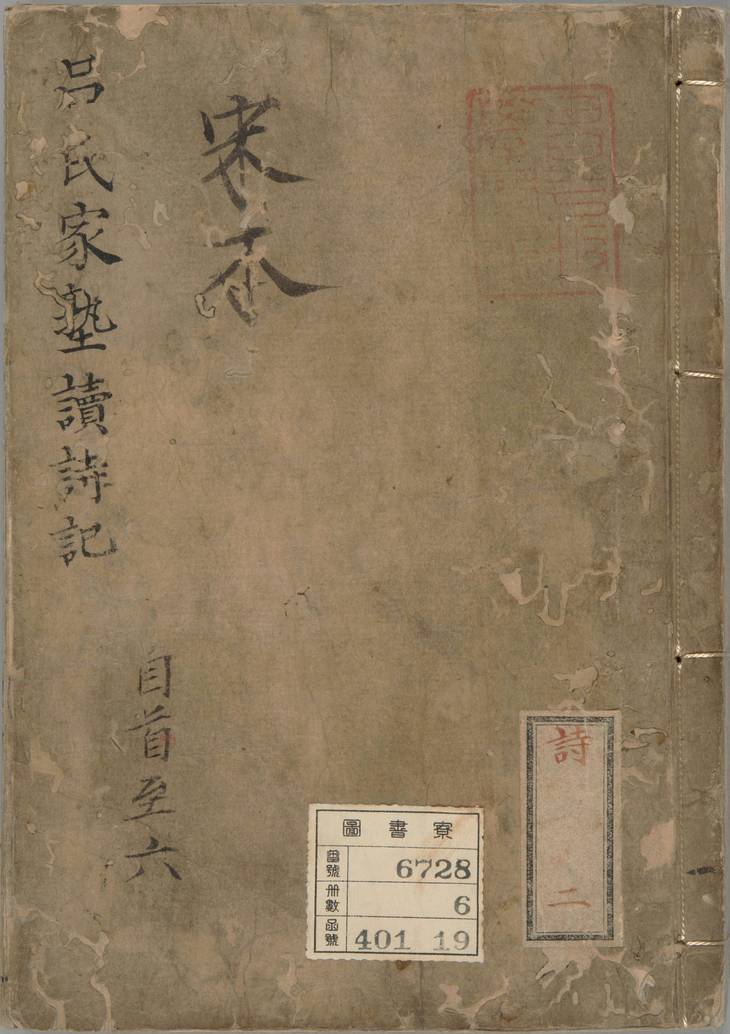 詩
二
宋本
呂氏家塾讀詩記
自首至六
圖書寮
番號 6728
册數 6
函號 401 19